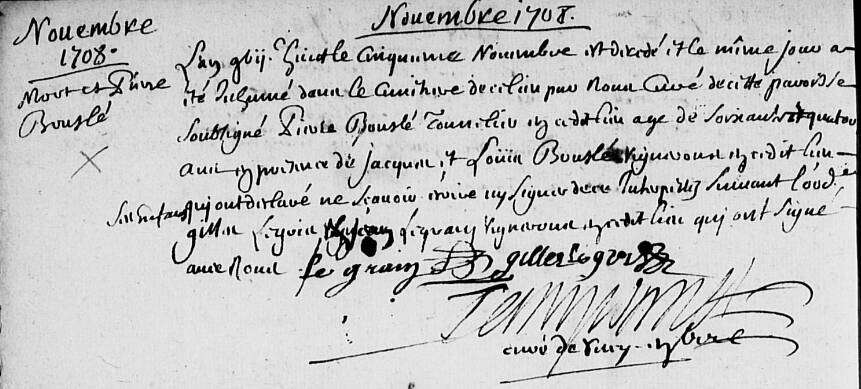 Nouembre 1708.
Nouembre
1708.
Mort et Pierre
Bouslé
L'an huict le cinquieme Nouembre est decedé et le même jour a
été inhumé dans le cimitiere de ce lieu par Nous Curé de cette parroisse
soubsigné Pierre Bouslé Tonnelier en ce dit lieu age de soixante et quatre
ans en presence de Jacques et Loüis Bouslé vignerons en ce dit lieu
ses enfans qui ont declaré ne sçauoir écrire ny signer de ce Interpellez suiuant l'ord.
gilles Legrain Legrain vignerons en ce dit lieu qui ont signé
auec Nous le grain gilles le grain
curé de